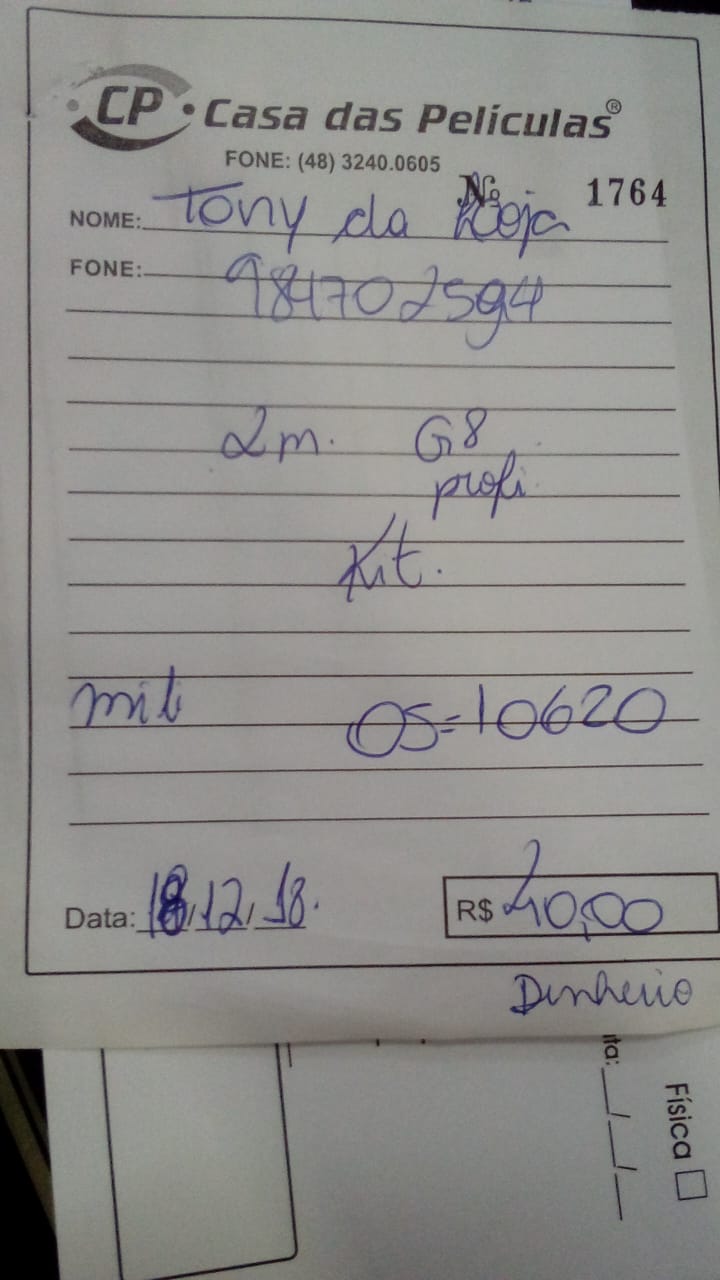 CP Casa das Películas®
FONE: (48) 3240.0605
Nº 1764
NOME: Tony da Loja
FONE: 984702594
2m. G8
profi.
Kit.
OS=10620
Data: 18/12/18.
R$ 40,00
Dinheiro
ta: __/__/__
Física